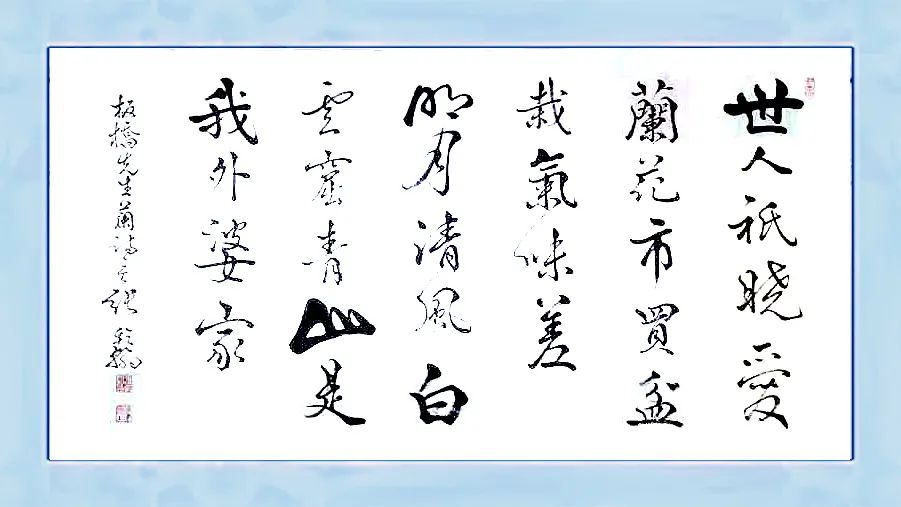 世人祇曉愛
蘭花市買盆
栽氣味差
明月清風白
雲窟青山是
我外婆家
板橋先生蘭詩之